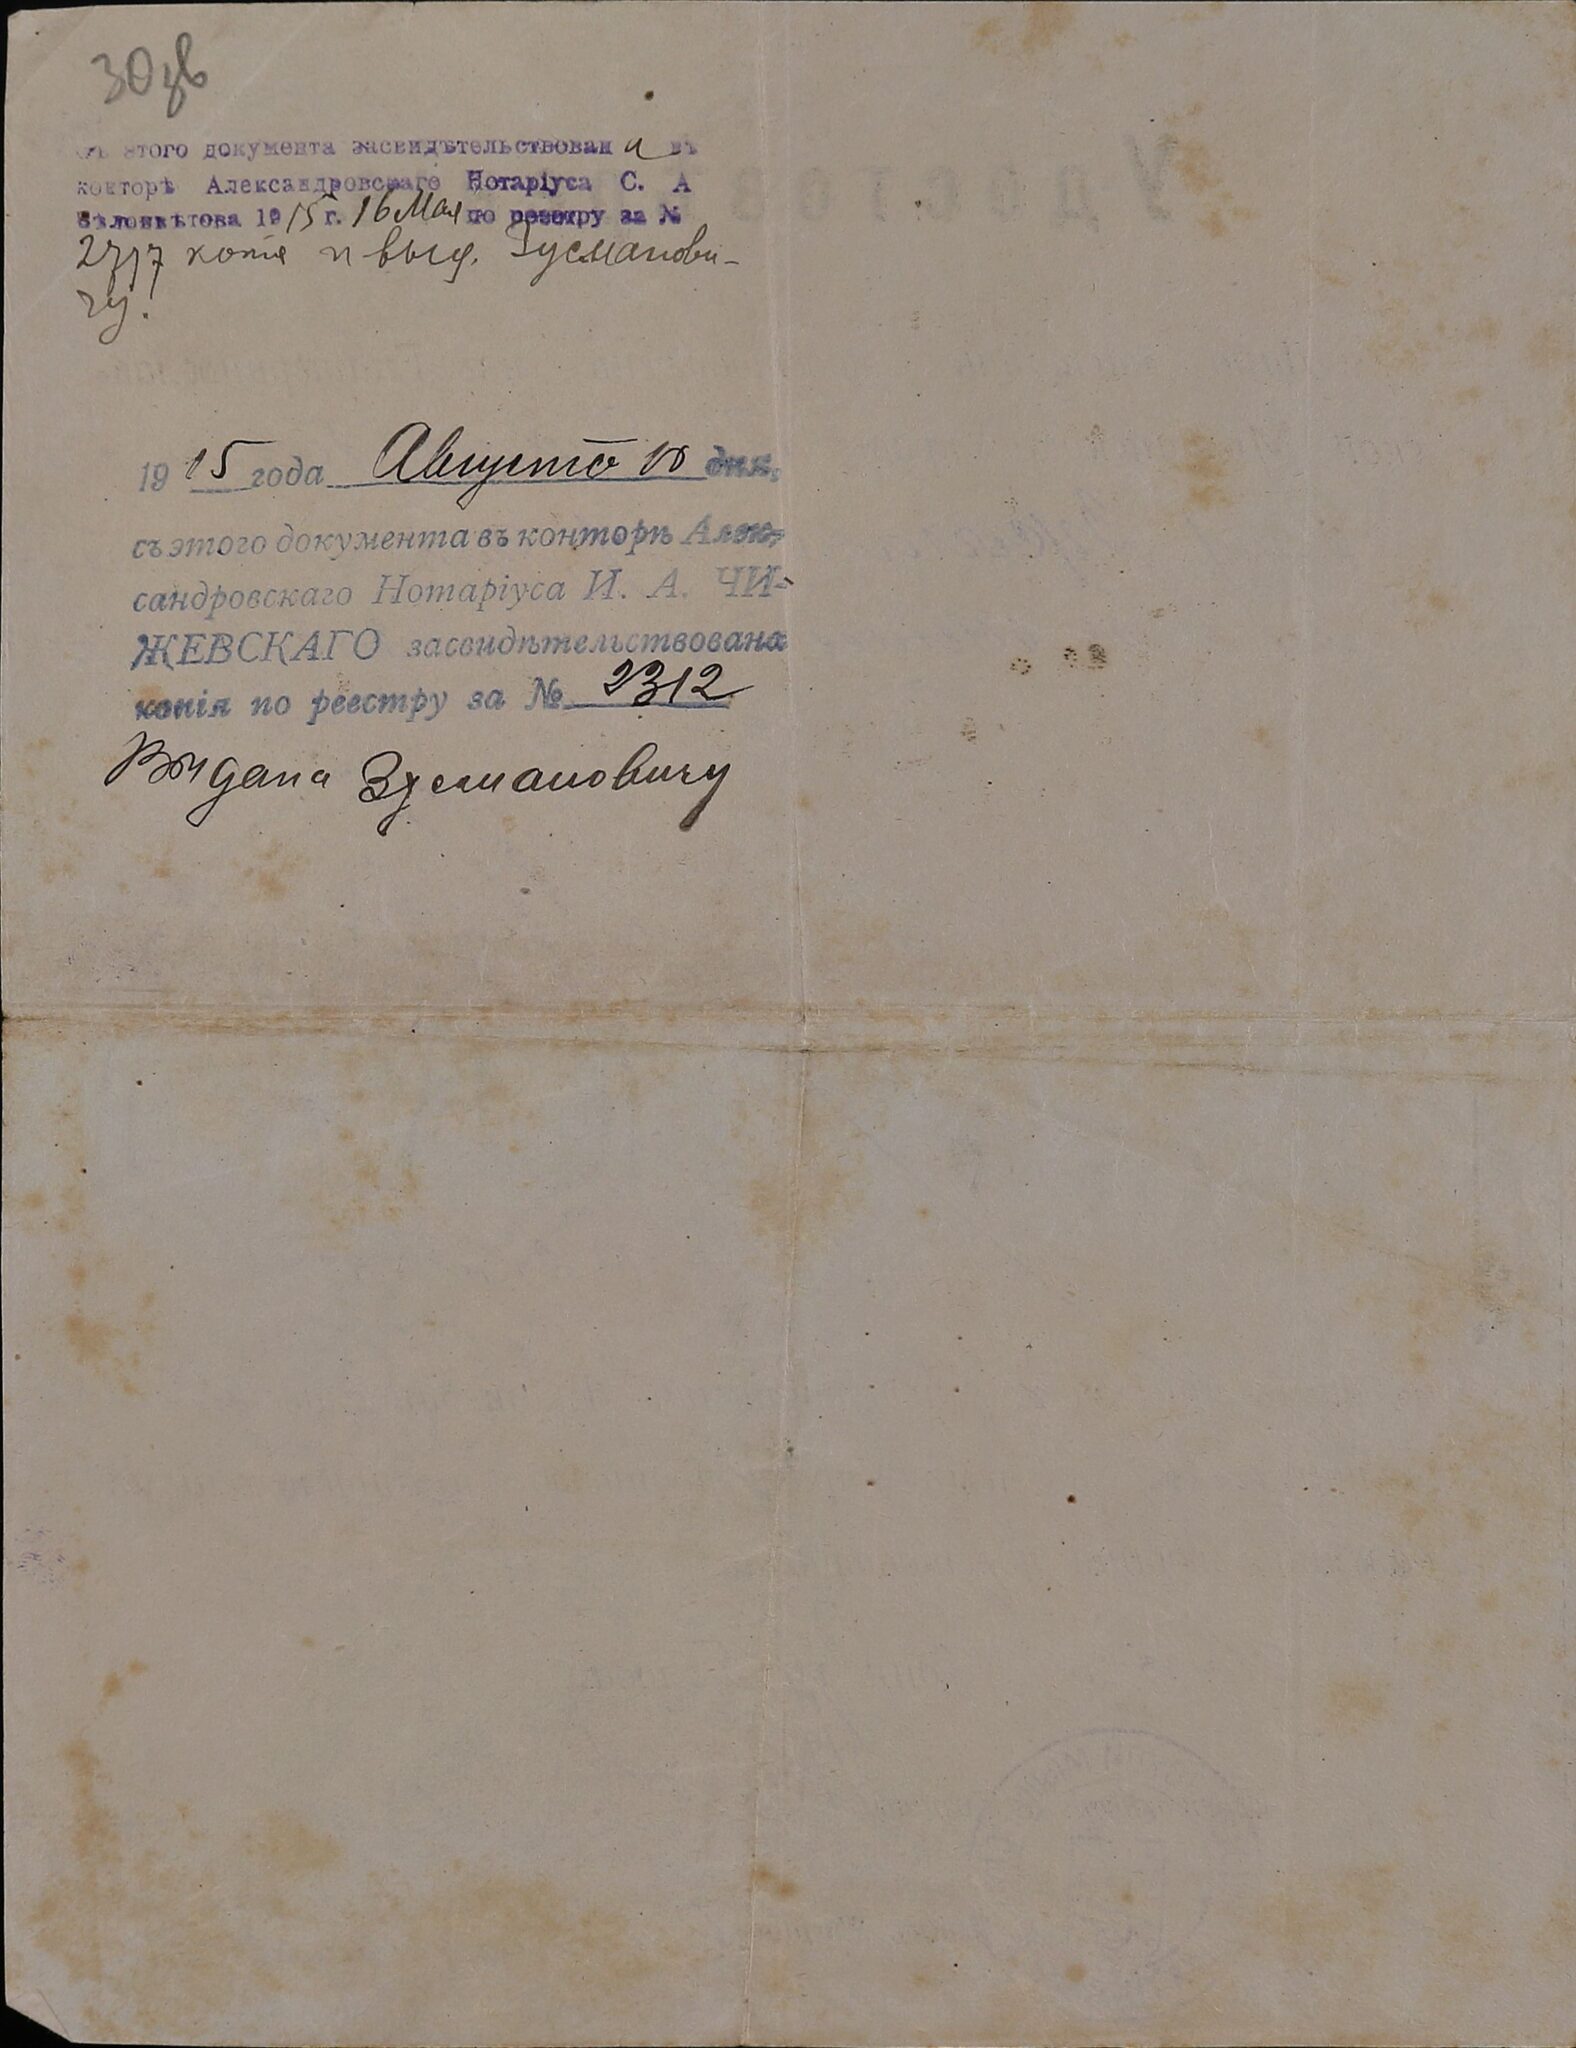 30 зв
Съ этого документа засвидѣтельствована въ
конторѣ Александровскаго Нотаріуса С. А
Бѣлоцвѣтова 1915 г. 16 Мая по реестру за №
копія и выд. Зусманови-
чу.
1915 года Августа 10 дня,
съ этого документа въ конторѣ Алек-
сандровскаго Нотаріуса И. А. ЧИ-
ЖЕВСКАГО засвидѣтельствована
копія по реестру за № 2312
Выдана Зусмановичу